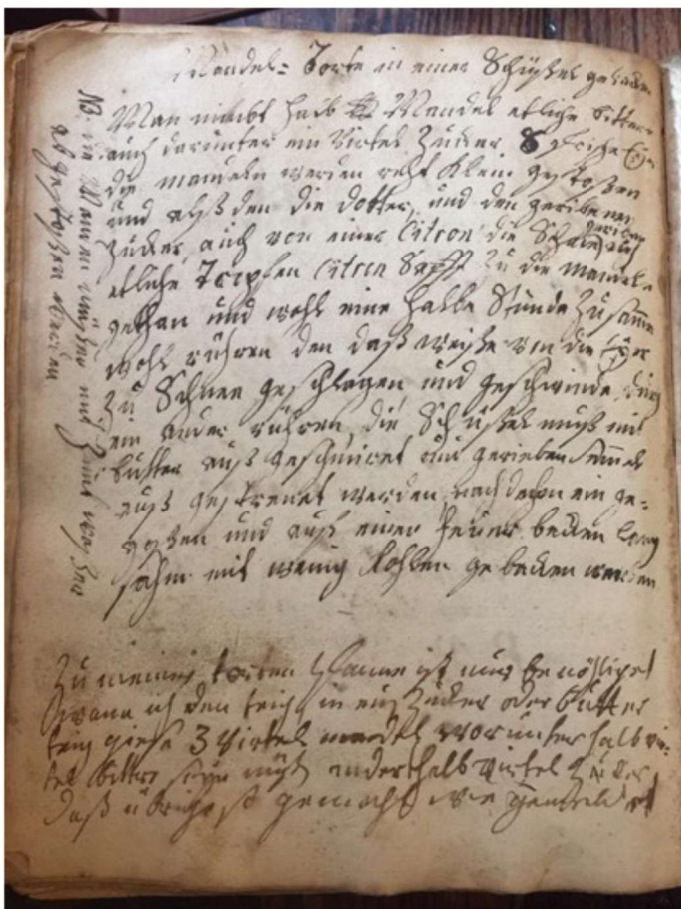 Mandel= Torte in einer Schüßel gebacken
Man nimbt halb Mandel etliche bittere
auch darunter ein Virtel Zucker 8 frische Eyer
die mandeln werden recht klein gestoßen
und alß den die dotter, und den geribenen
Zucker, auch von einer Citron die Schale geriben auch
etliche Tropfen Citron Safft zu die Mandeln
gethan und wohl eine halbe Stunde Zusamen
wohl rühren den daß weiße von die Eyer
zu Schnee geschlagen und geschwinde durch
ein ander rühren, die Schüßel muß mit
butter auß geschmiret und gerieben Semel
auß gestreuet werden, nach dehm ein ge=
goßen und auf einer feuer becken lang
sahm mit wenig Kohlen gebacken werden
NB: die Mandeln müßen mit
abgestoßen werden
Zu meiner torten Pfanne ist nur benöthiget
wann ich den teich in auß Zucker oder butter
teig gieße 3 Virtel mandel worunter halb vir=
tel bitter sein muß anderthalb Virtel Zucker
daß übrige ist gemacht wie gemeldet